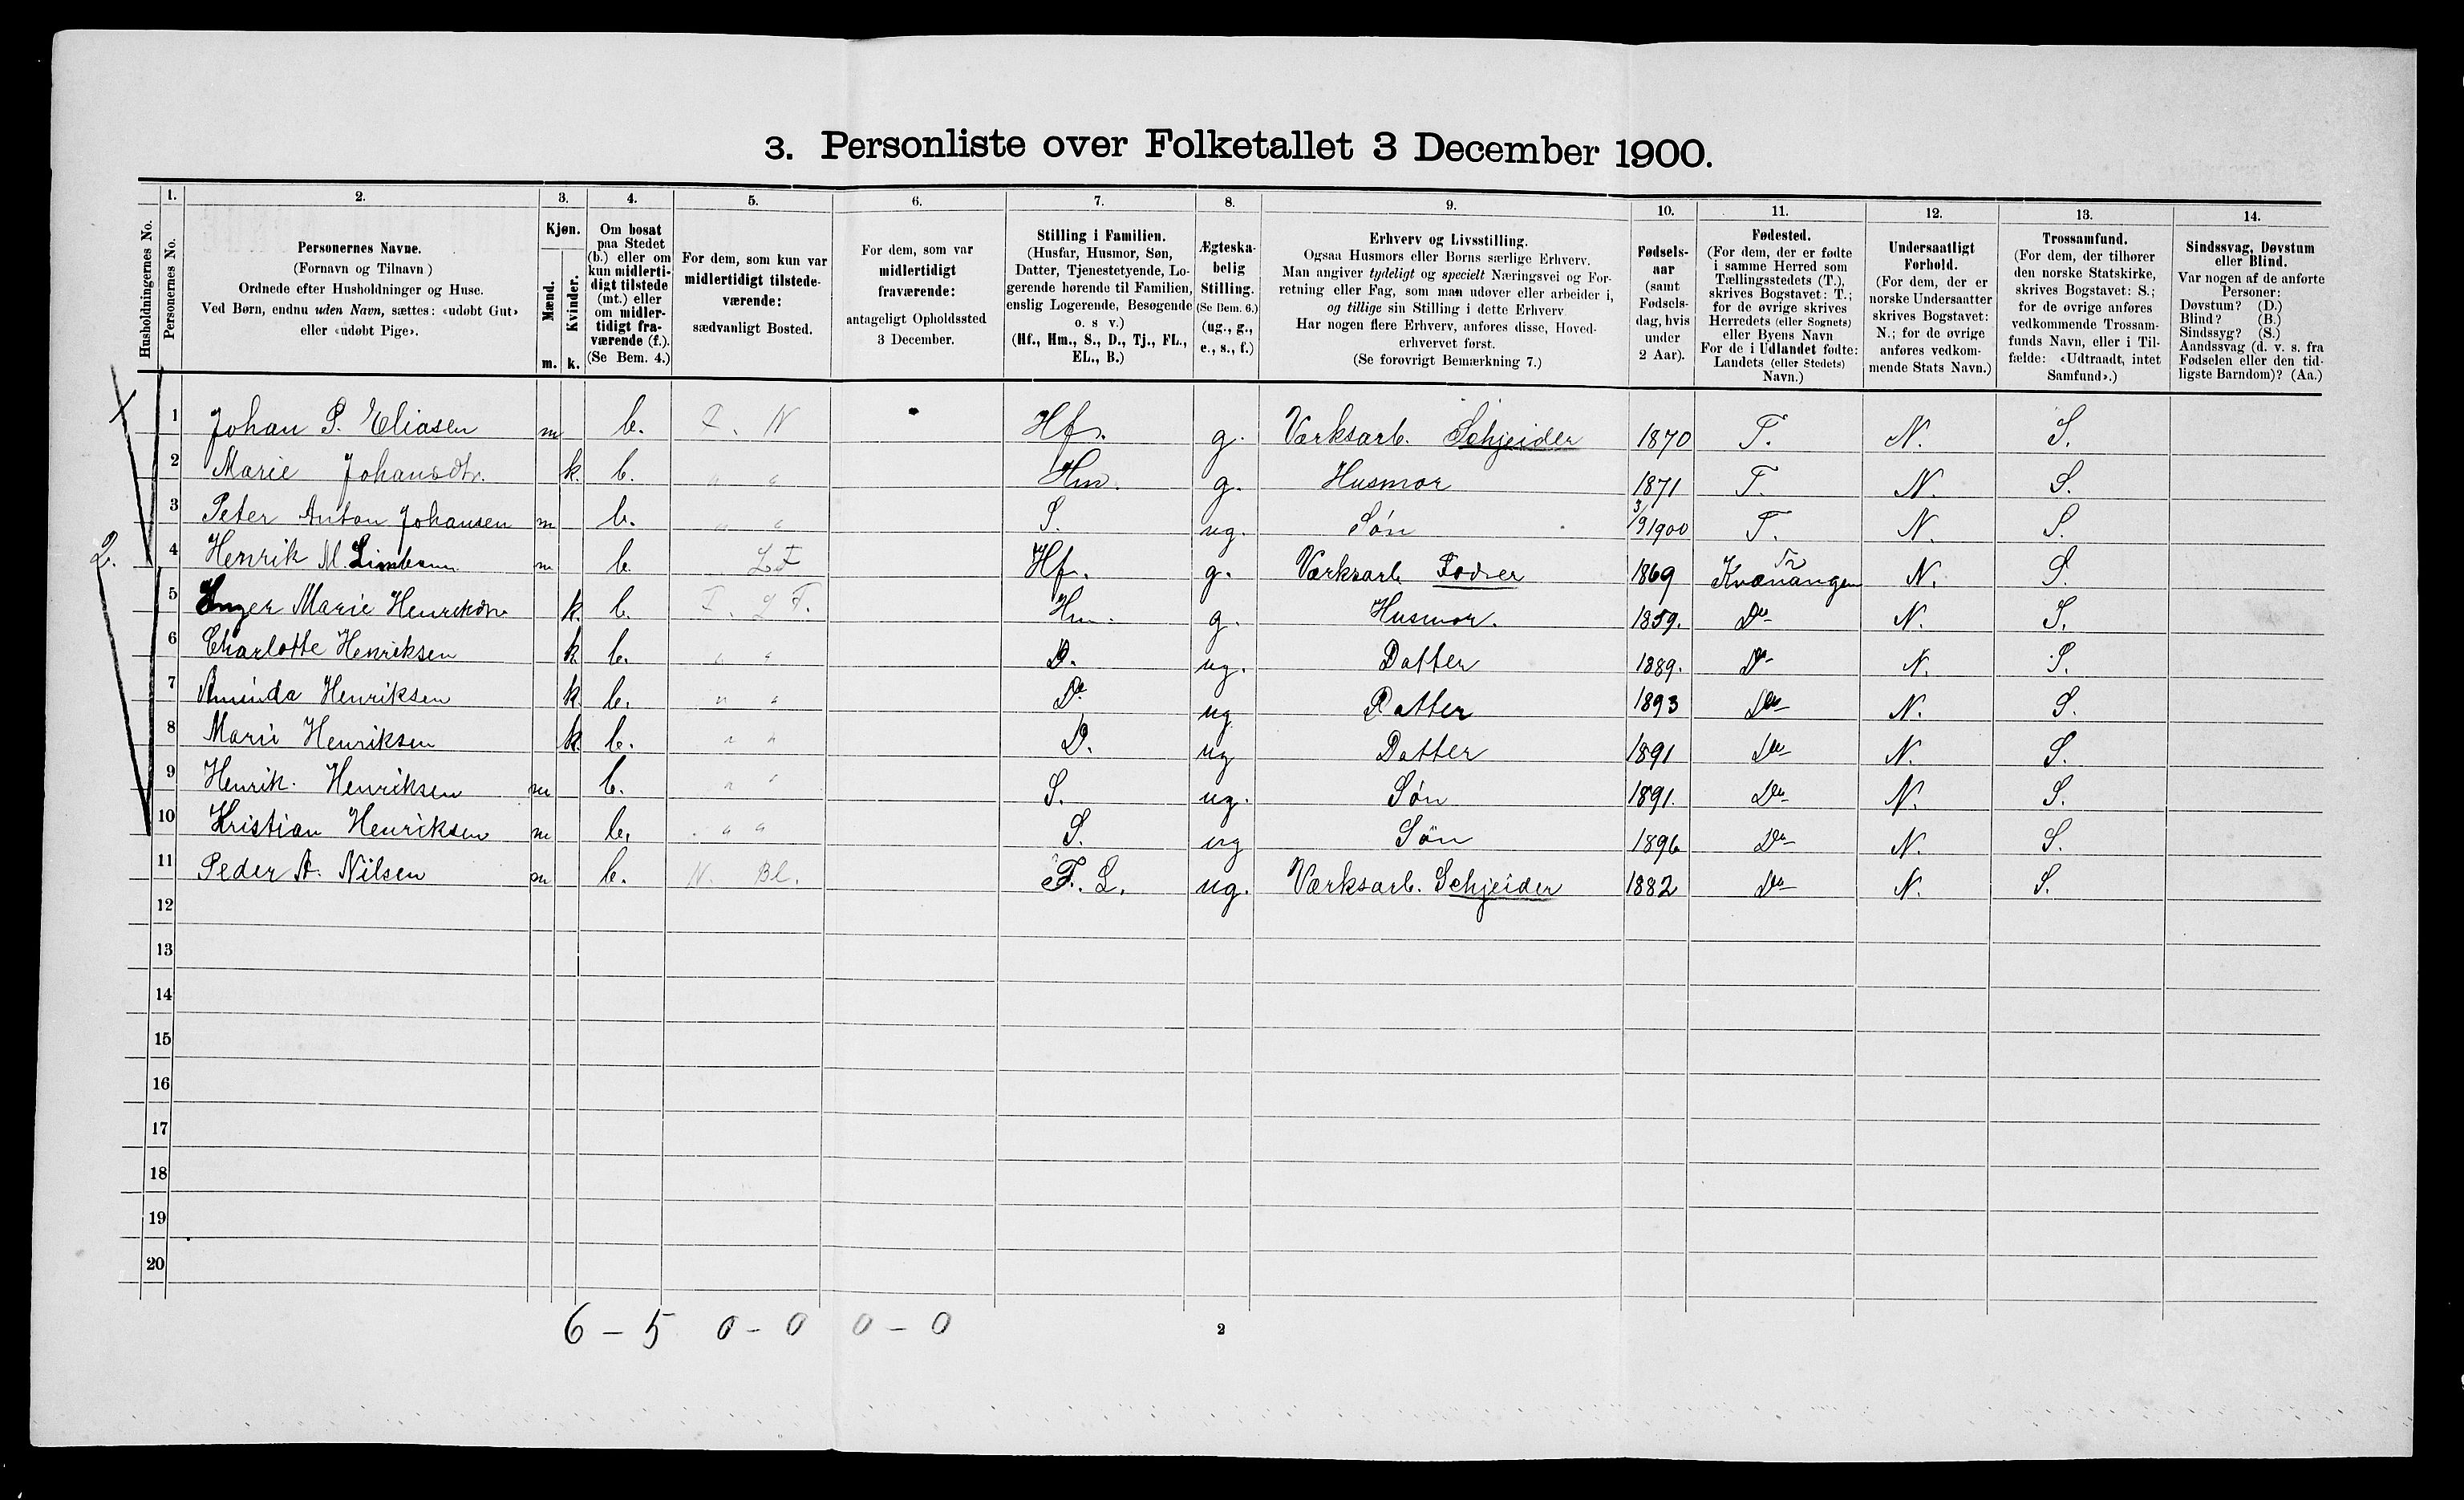 3. Personliste over Folketallet 3 December 1900.
Husholdningernes No.
1. Personernes No.
2. Personernes Navne. (Fornavn og Tilnavn) Ordnede efter Husholdninger og Huse. Ved Børn, endnu uden Navn, sættes: «udøbt Gut» eller «udøbt Pige».
3. Kjøn. Mænd. m. Kvinder. k.
4. Om bosat paa Stedet (b.) eller om kun midlertidigt tilstede (mt.) eller om midlertidigt fraværende (f.). (Se Bem. 4.)
5. For dem, som kun var midlertidigt tilstedeværende: sædvanligt Bosted.
6. For dem, som var midlertidigt fraværende: antageligt Opholdssted 3 December.
7. Stilling i Familien. (Husfar, Husmor, Søn, Datter, Tjenestetyende, Logerende hørende til Familien, enslig Logerende, Besøgende o. s v.) (Hf., Hm., S., D., Tj., FL., EL., B.)
8. Ægteskabelig Stilling. (Se Bem. 6.) (ug., g., e., s., f.)
9. Erhverv og Livsstilling. Ogsaa Husmors eller Børns særlige Erhverv. Man angiver tydeligt og specielt Næringsvei og Forretning eller Fag, som man udøver eller arbeider i, og tillige sin Stilling i dette Erhverv. Har nogen flere Erhverv, anføres disse, Hovederhvervet først. (Se forøvrigt Bemærkning 7.)
10. Fødselsaar (samt Fødselsdag, hvis under 2 Aar).
11. Fødested. (For dem, der er fødte i samme Herred som Tællingsstedets (T.), skrives Bogstavet: T.; for de øvrige skrives Herredets (eller Sognets) eller Byens Navn For de i Udlandet fødte: Landets (eller Stedets) Navn.)
12. Undersaatligt Forhold. (For dem, der er norske Undersaatter skrives Bogstavet: N.; for de øvrige anføres vedkommende Stats Navn.)
13. Trossamfund. (For dem, der tilhører den norske Statskirke, skrives Bogstavet: S.; for de øvrige anføres vedkommende Trossamfunds Navn, eller i Tilfælde: «Udtraadt, intet Samfund».)
14. Sindssvag, Døvstum eller Blind. Var nogen af de anførte Personer: Døvstum? (D.) Blind? (B.) Sindssyg? (S.) Aandssvag (d. v. s. fra Fødselen eller den tidligste Barndom)? (Aa.)
1 Johan P. Eliasen m b. F. N Hf. g. Værksarb. Schjeider 1870 T. N. S.
2 Marie Johansdtr. k. b. " " Hm. g. Husmor 1871 T. N. S.
3 Peter Anton Johansen m b. " " S. ug. Søn 3/9 1900 T. N. S.
2. 4 Henrik M. m b. LF Hf. g. Værksarb. 1869 Kvænangen N. S.
5 Inger Marie Henrikdtr k. b. F. LF. Hm. g. Husmor. 1859. Do N. S.
6 Charlotte Henriksen k b. " " D. ug. Datter 1889. Do N. S.
7 Aminda Henriksen k b. " " D. ug Datter 1893 Do N. S.
8 Marie Henriksen k. b. " " D. ug Datter 1891 Do N. S.
9 Henrik. Henriksen m b. " " S. ug. Søn 1891. Do N. S.
10 Kristian Henriksen m b. " " S. ug Søn 1896 Do N. S.
11 Peder A. Nilsen m b. N. Bl. F. L. ug. Værksarb. Schjeider 1882 Do N. S.
12
13
14
15
16
17
18
19
20
6 – 5 0 – 0 0 – 0
2